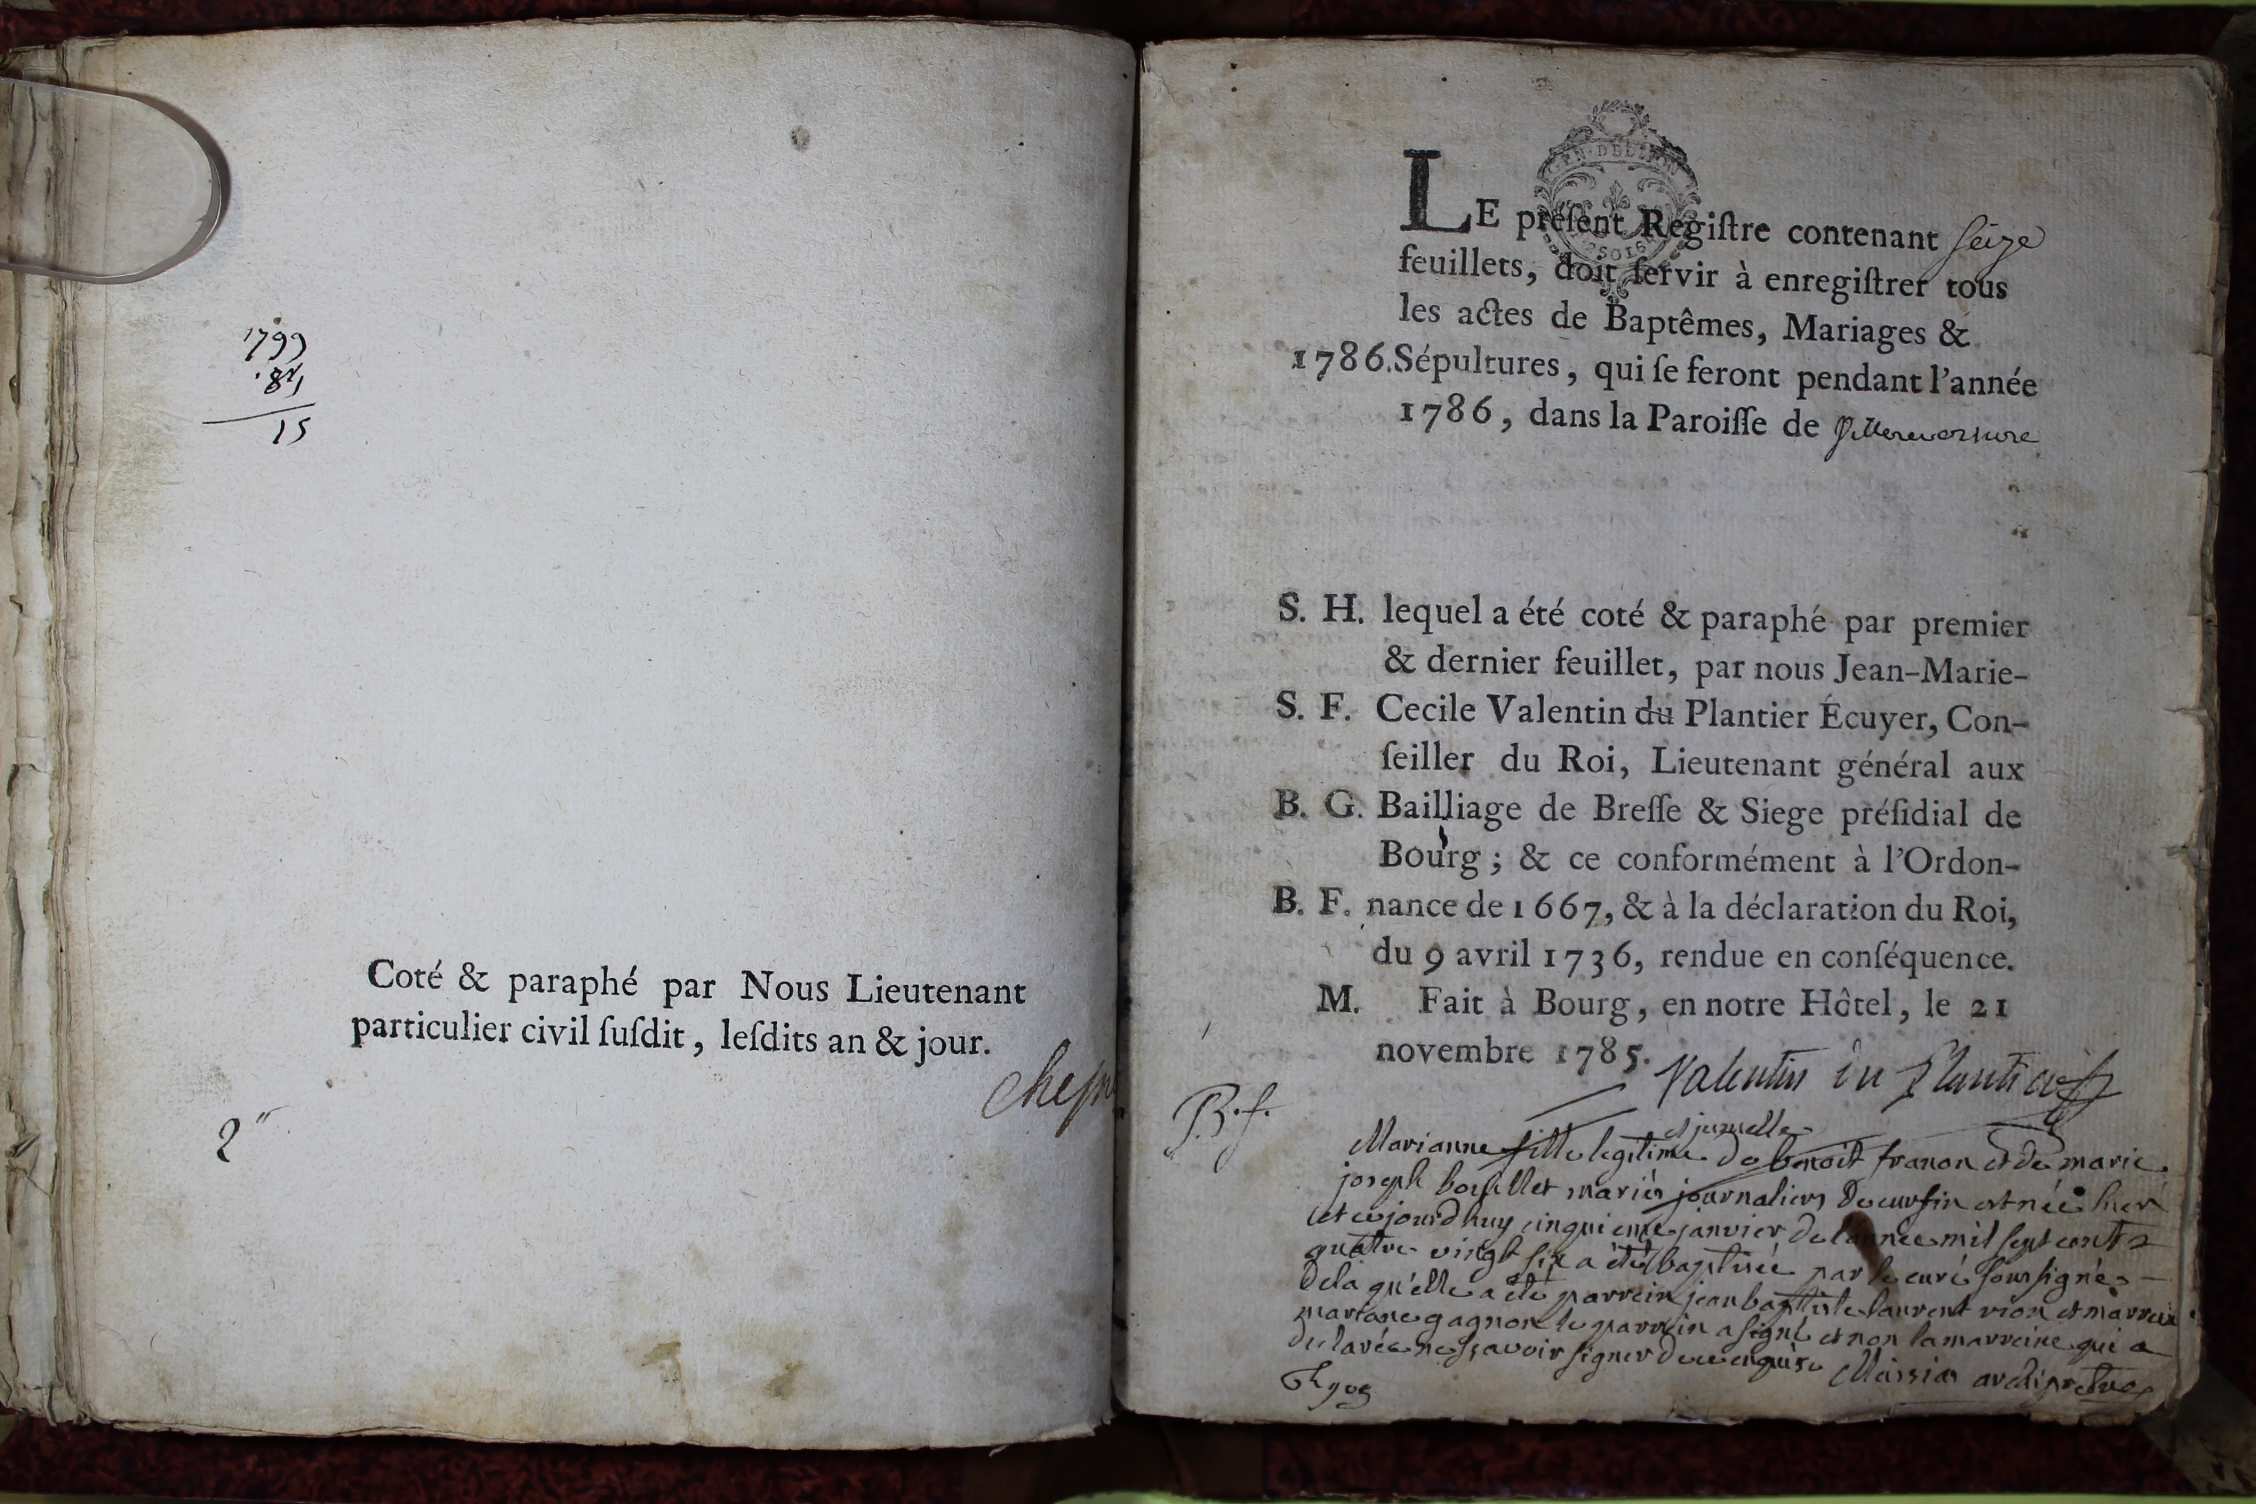 1799
15
Coté & paraphé par Nous Lieutenant
particulier civil ſuſdit, leſdits an & jour.
2
LE préſent Regiſtre contenant ſeize
feuillets, doit ſervir à enregiſtrer tous
les actes de Baptêmes, Mariages &
1786. Sépultures, qui ſe feront pendant l'année
1786, dans la Paroiſſe de Villereversure
S. H. lequel a été coté & paraphé par premier
& dernier feuillet, par nous Jean-Marie-
S. F. Cecile Valentin du Plantier Écuyer, Con-
ſeiller du Roi, Lieutenant général aux
B. G. Bailliage de Breſſe & Siege préſidial de
Bourg ; & ce conformément à l'Ordon-
B. F. nance de 1667, & à la déclaration du Roi,
du 9 avril 1736, rendue en conſéquence.
M. Fait à Bourg, en notre Hôtel, le 21
novembre 1785.
Valentin du Plantier
B. f.
et jumelle
Marianne fille legitime de benoit franon et de marie
joseph bouillet mariés journaliers est née hier
et cejourdhuy cinquieme janvier de l'année mil sept cent
quatre vingt six a été baptisée par le curé soussigné
dela qu'elle a été parrein jean baptiste laurent vion et marreine
mariane gagnon le parrein a signé et non la marreine qui a
declarée ne sçavoir signer de ce enquise
archiprêtre